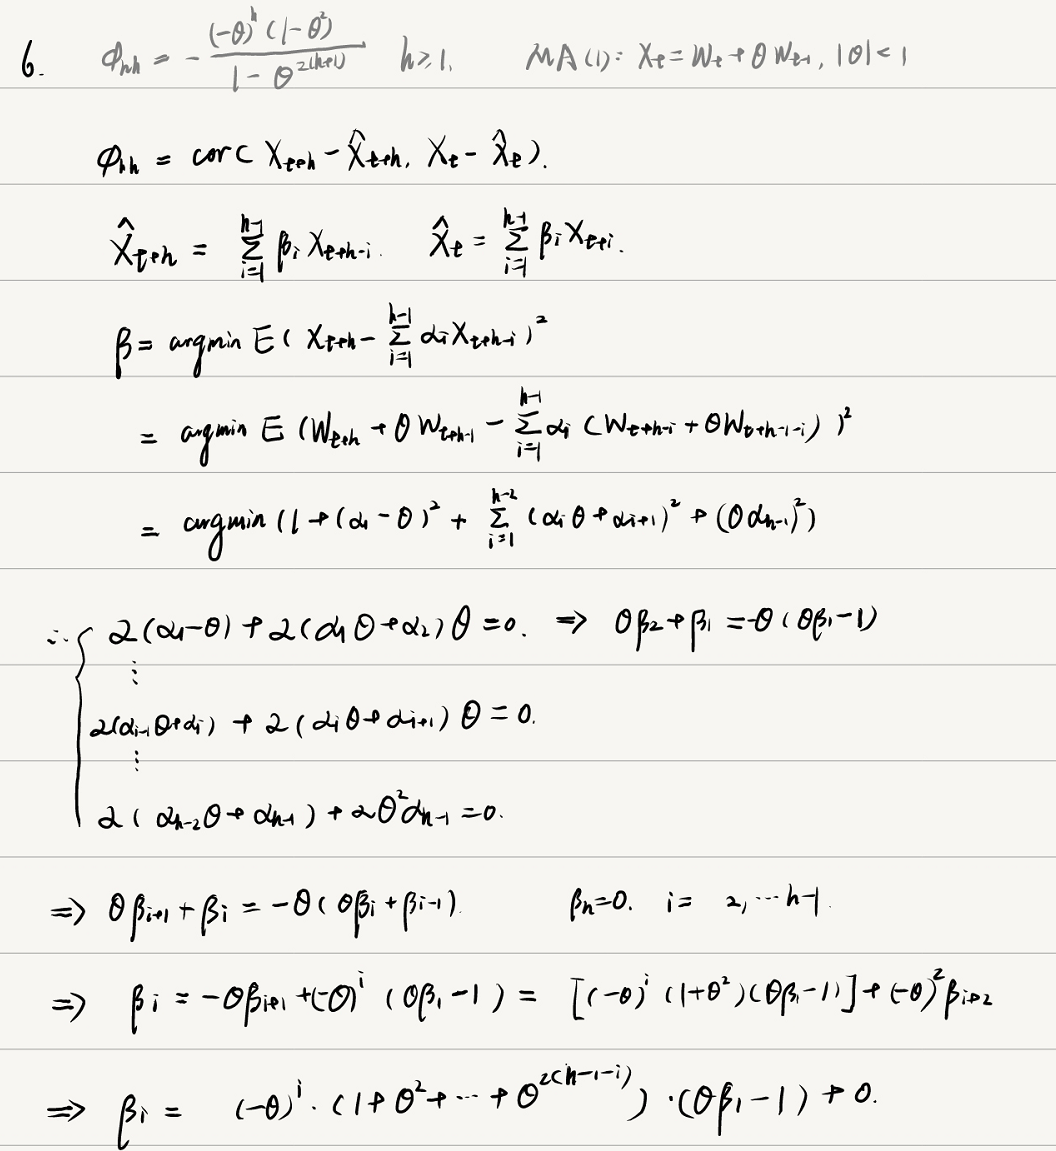 6. ϕ_hh = - \frac{(-θ)^h (1-θ^2)}{1-θ^{2(h+1)}} h≥1. MA(1): X_t = W_t + θ W_{t-1}, |θ|<1
ϕ_hh = cor( X_{t+h} - \hat{X}_{t+h}, X_t - \hat{X}_t ).
\hat{X}_{t+h} = \sum_{i=1}^{h-1} β_i X_{t+h-i}. \hat{X}_t = \sum_{i=1}^{h-1} β_i X_{t+i}.
β = argmin E( X_{t+h} - \sum_{i=1}^{h-1} α_i X_{t+h-i} )^2
= argmin E (W_{t+h} + θ W_{t+h-1} - \sum_{i=1}^{h-1} α_i (W_{t+h-i} + θW_{t+h-1-i}) )^2
= argmin (1 + (α_1 - θ)^2 + \sum_{i=1}^{h-2} (α_i θ + α_{i+1})^2 + (θ α_{h-1})^2)
∴ { 2(α_1-θ) + 2(α_1 θ + α_2) θ = 0. ⇒ θβ_2 + β_1 = -θ (θβ_1 - 1)
⋮
2(α_{i-1} θ + α_i) + 2(α_i θ + α_{i+1}) θ = 0.
⋮
2( α_{h-2} θ + α_{h-1} ) + 2θ^2 α_{h-1} = 0.
⇒ θβ_{i+1} + β_i = -θ( θβ_i + β_{i-1} ). β_h = 0. i = 2, ... h-1.
⇒ β_i = -θβ_{i+1} + (-θ)^i (θβ_1 - 1) = [(-θ)^i (1+θ^2)(θβ_1 - 1)] + (-θ)^2 β_{i+2}
⇒ β_i = (-θ)^i · (1 + θ^2 + ··· + θ^{2(h-1-i)}) · (θβ_1 - 1) + 0.